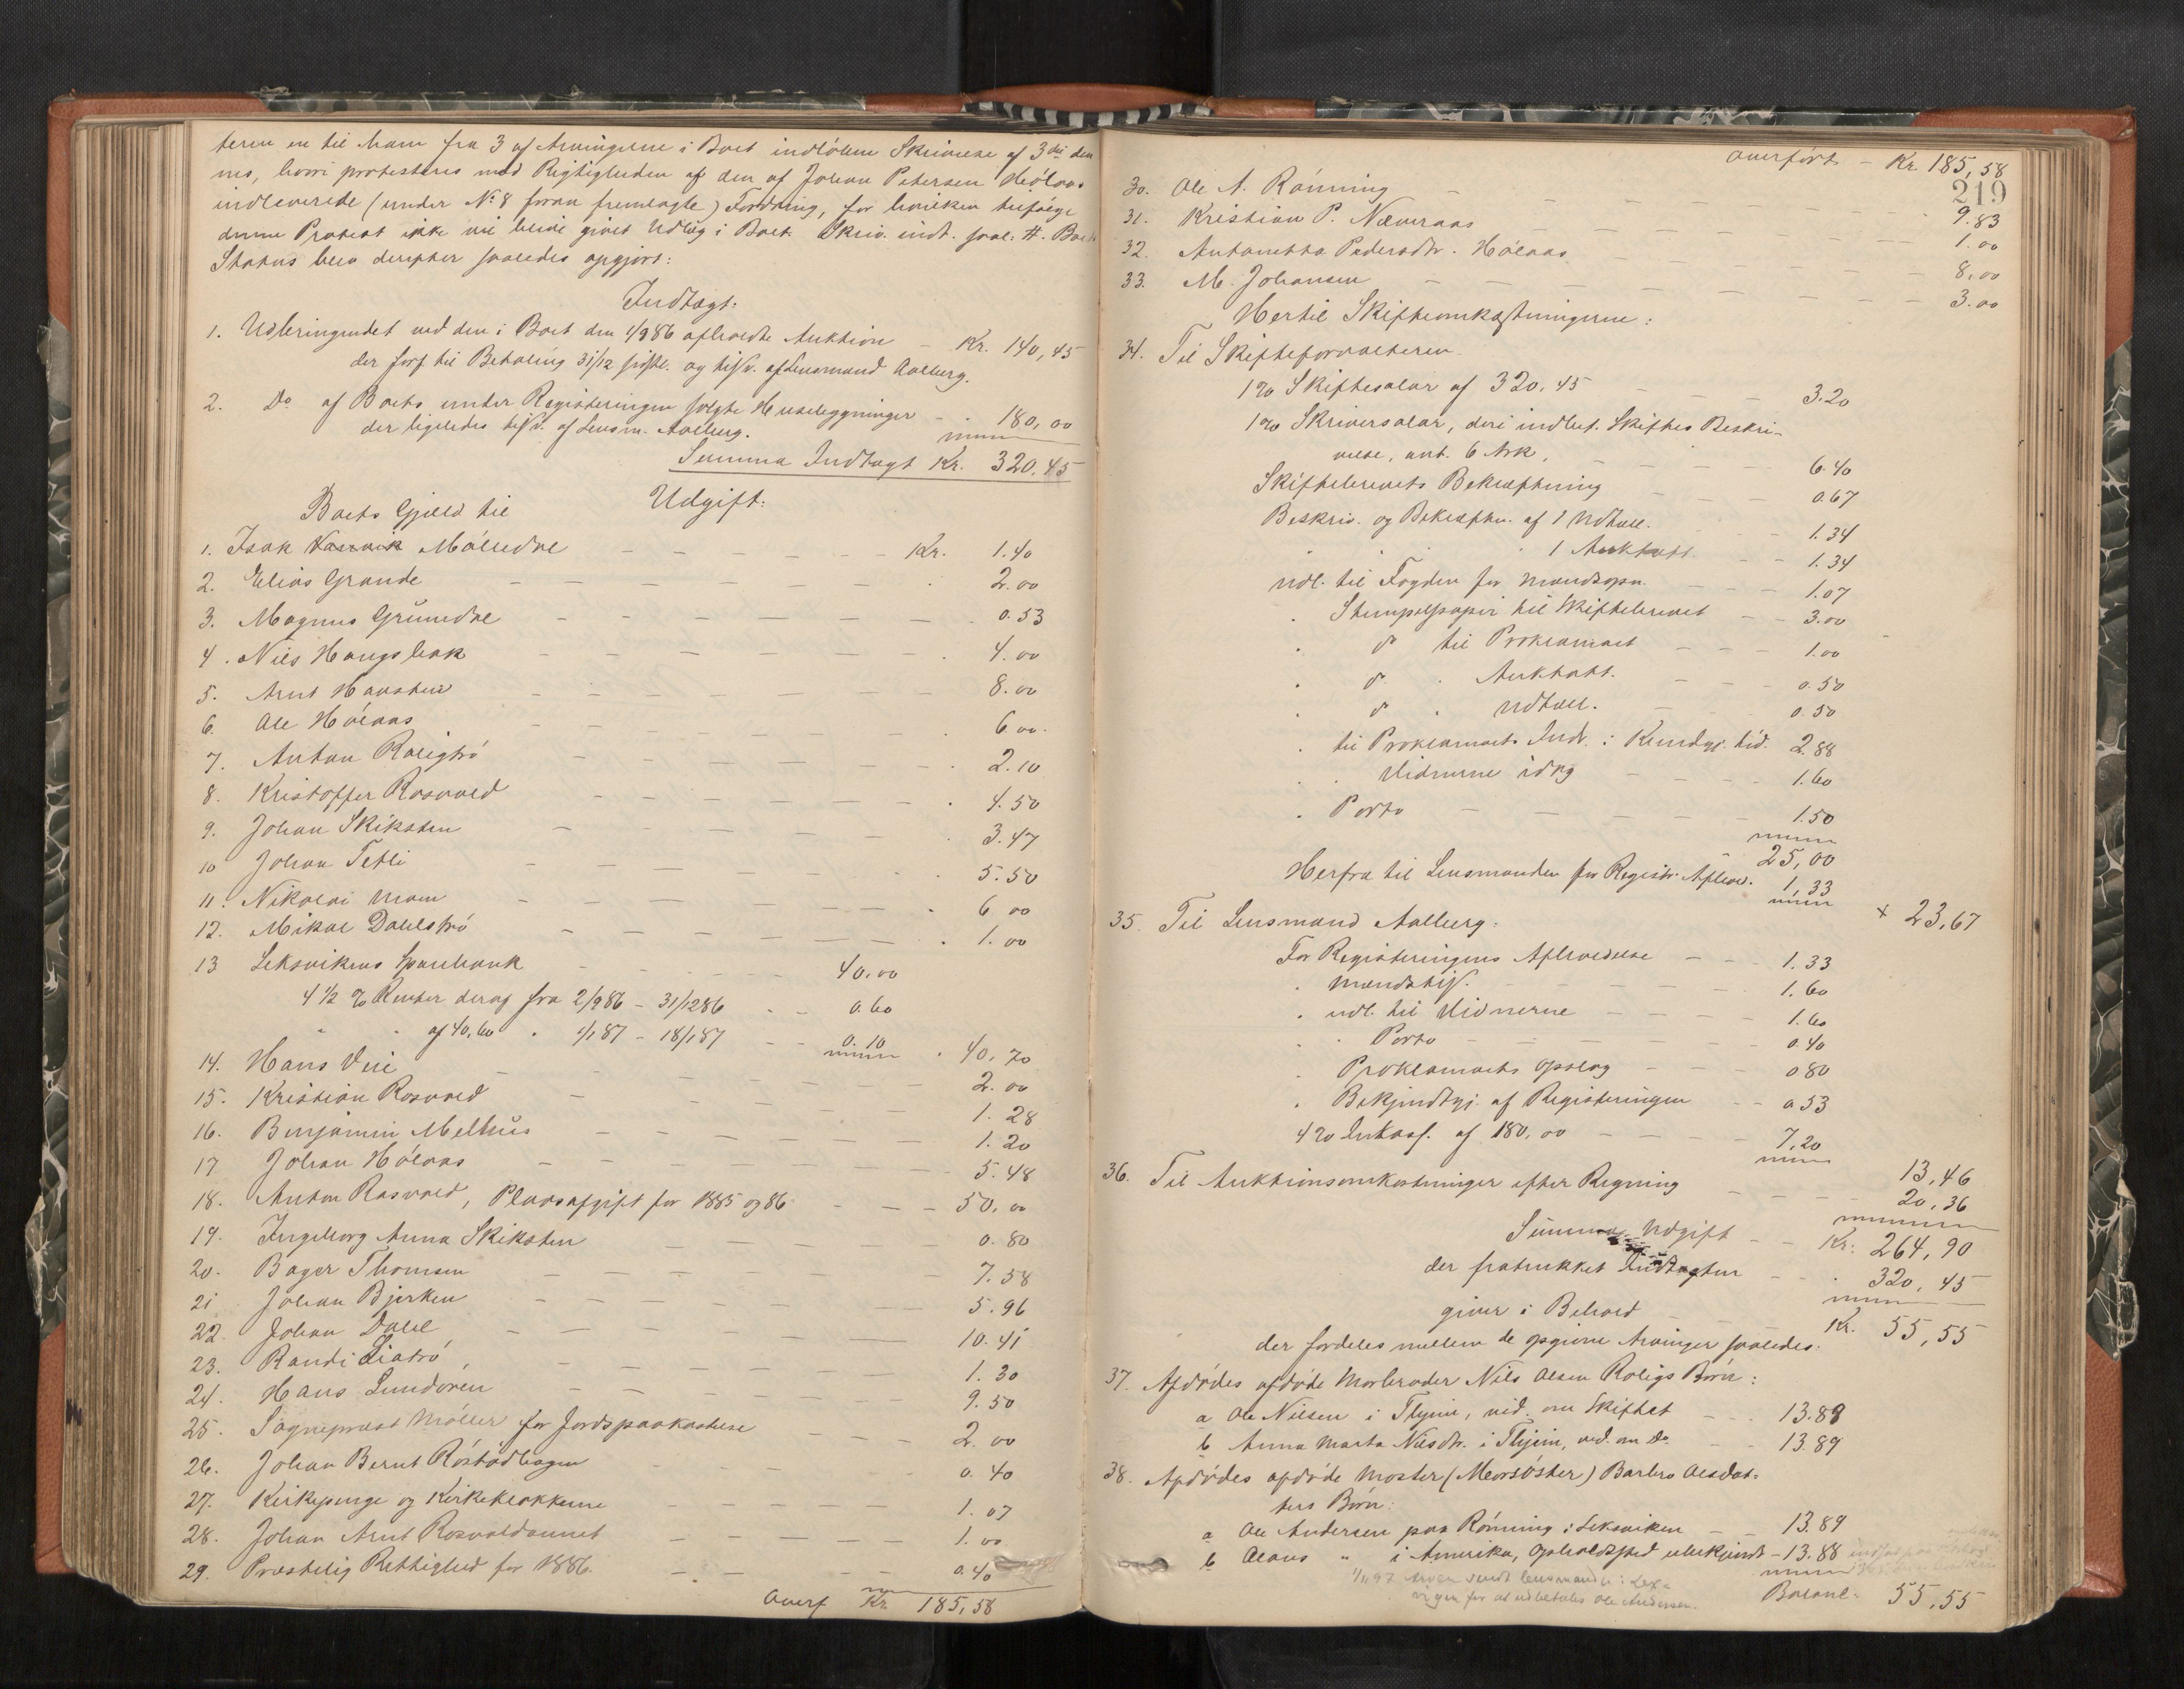 teren en til ham fra 3 af Arvingerne i Boet indløben Skrivelse af 3die den
nes, hvori protesteres mod Rigtigheden af den af Johan Petersen Hølaas
indleverede (under No 8 foran fremlagte) Fordring, for hvilken tilfølge
denne Protest ikke vil blive givet Udlæg i Boet. Skriv. indt. saal: #. Boets
Status blev derefter saaledes opgjort:
Indtægt:
1. Udbringendet ved den i Boet den 1/9 86 afholdte Auktion - Kr. 140,45
der forf. til Betaling 31/12 sidstl. og tilsv. af Lensmand Aalberg.
2. Do af Boets under Registeringen solgte Huseleggninger - " 180,00
der ligeledes tilsv. af Lensm. Aalberg.
Summa Indtægt Kr. 320.45
Udgift:
Boets Gjæld til
1. Isak Vasvik Møllerdal - Kr. 1.40
2. Elias Grande - 2.00
3. Magnus Grundal - 0.53
4. Nils Haugsbak - 4.00
5. Arnt Haustein - 8.00
6. Ole Hølaas - 6.00
7. Anton Roligtrø - 2.10
8. Kristoffer Rosvold - 4.50
9. Johan Skiksten - 3.47
10 Johan Tetli - 5.50
11. Nikolai Moen - 6 00
12. Mikal Dahlstrø - 1.00
13 Leksvikens Sparebank - 40.00
4 1/2 % Renter deraf fra 2/9 86 - 31/12 86 - 0.60
" " af 40,60 " 1/1 87 - 18/1 87 - 0.10 " 40,70
14. Hans Vei - 2.00
15. Kristian Rosvold - 1.28
16. Benjamin Melhus - 1.20
17 Johan Hølaas - 5.48
18. Anton Rosvold, Pladsafgift for 1885 og 86 - 50,00
19. Ingeborg Anna Skiksten - 0.80
20. Bager Thomsen - 7.58
21 Johan Bjerken - 5.96
22. Johan Dahl - 10.41
23. Randi Liatrø - 1.30
24. Hans Lundoren - 9.50
25. Sogneprest Møller for Jordspaakastelse - 2.00
26. Johan Bernt Røstadhagen - 0.40
27. Kirkepenge og Kirkeklokkerne - 1.07
28. Johan Arnt Rosvoldaunet - 1.00
29. Prestelig Rettighed for 1886. - 0.40
Overf Kr 185,58
Overført - Kr 185,58
219
30. Ole A. Rønning - 9.83
31. Kristian P. Næveraas - 1.00
32. Antonetta Pedersdtr. Hølaas - 8.00
33. M. Johansen - 3.00
Hertil Skifteomkostningerne:
34. Til Skifteforvalteren
1% Skiftesalær af 320.45 - 3.20
1% Skriversalær, deri indbef. Skiftes Beskri-
velse, ant. 6 Ark, - 6.40
Skiftebrevets Bekræftning - 0.67
Beskriv. og Bekræftn. af 1 Udtæll. - 1.34
" " " 1 Auktatt. - 1.34
Udl. til Fogden for Mandsopn. - 1.07
" Stempelpapir til Skiftebrevet - 3.00
" do til Proklamaet - 1.00
" do " Auktatt. - 0.50
" do " Udtæll. - 0.50
" til Proklamaets Indr. i Kundgj. tid. 2.88
" " Vidnerne idag - 1.60
" Porto - 1.50
25,00
Herfra til Lensmanden for Registr. Afhold. 1,33
+ 23,67
35. Til Lensmand Aalberg:
For Registeringens Afholdelse - 1.33
" Mandstils. - 1.60
" udl. til Vidnerne - 1.60
" " Porto - 0.40
" Proklamaets Opslag - 0 80
" Bekjendtgj. af Registeringen - 0 53
4% Inkass. af 180,00 - 7,20
13,46
36. Til Auktionsomkostninger efter Regning - 20,36
Summa Udgift - Kr: 264,90
der fratrukket Indtægten - 320,45
giver i Behold - Kr. 55,55
der fordeles mellem de opgivne Arvinger saaledes:
37. Afdødes afdøde Morbroder Nils Olsen Roligs Børn:
a Ole Nilsen i Thjem, vid. om Skiftet - 13.89
b Anna Marta Nilsdtr. i Thjem, vid. om Do - 13.89
38. Afdødes afdøde Moster (Morsøster) Barbro Olsdat-
ters Børn:
a Ole Andersen paa Rønning i Leksviken - 13.89
b Olaus " i Amerika, Opholdssted ubekjendt - 13.88
1/11 97 Arven sendt lensmanden i Lex-
vigen for at udbetales Ole Andersen.
Balance. 55,55